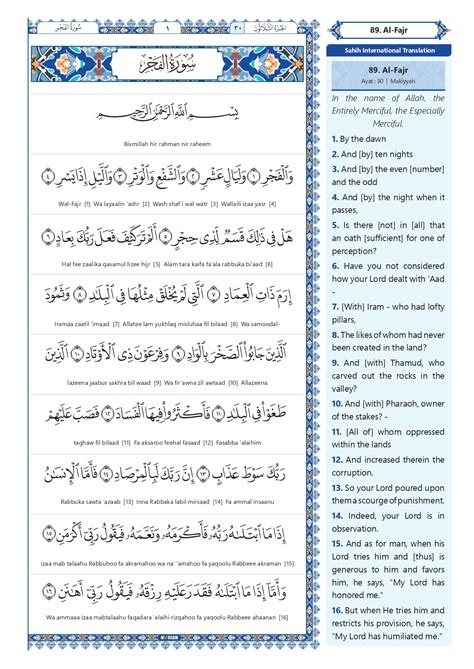 سُورَةُ الفَجْرِ
١
٣٠
الجُزْءُ الثَّلَاثُونَ
سُورَةُ الْفَجْرِ
بِسْمِ اللَّهِ الرَّحْمَٰنِ الرَّحِيمِ
Bismillah hir rahman nir raheem
وَالْفَجْرِ ١ وَلَيَالٍ عَشْرٍ ٢ وَالشَّفْعِ وَالْوَتْرِ ٣ وَاللَّيْلِ إِذَا يَسْرِ ٤
Wal-Fajr [1] Wa layaalin 'ashr [2] Wash shaf'i wal watr [3] Wallaili izaa yasr [4]
هَلْ فِي ذَٰلِكَ قَسَمٌ لِّذِي حِجْرٍ ٥ أَلَمْ تَرَ كَيْفَ فَعَلَ رَبُّكَ بِعَادٍ ٦
Hal fee zaalika qasamul lizee hijr [5] Alam tara kaifa fa'ala rabbuka bi'aad [6]
إِرَمَ ذَاتِ الْعِمَادِ ٧ الَّتِي لَمْ يُخْلَقْ مِثْلُهَا فِي الْبِلَادِ ٨ وَثَمُودَ
Iramaa zaatil 'imaad [7] Allatee lam yukhlaq misluhaa fil bilaad [8] Wa samoodal-
الَّذِينَ جَابُوا الصَّخْرَ بِالْوَادِ ٩ وَفِرْعَوْنَ ذِي الْأَوْتَادِ ١٠ الَّذِينَ
lazeena jaabus sakhra bil waad [9] Wa fir'awna zil awtaad [10] Allazeena
طَغَوْا فِي الْبِلَادِ ١١ فَأَكْثَرُوا فِيهَا الْفَسَادَ ١٢ فَصَبَّ عَلَيْهِمْ
taghaw fil bilaad [11] Fa aksaroo feehal fasaad [12] Fasabba 'alaihim
رَبُّكَ سَوْطَ عَذَابٍ ١٣ إِنَّ رَبَّكَ لَبِالْمِرْصَادِ ١٤ فَأَمَّا الْإِنسَانُ
Rabbuka sawta 'azaab [13] Inna Rabbaka labil mirsaad [14] Fa ammal insaanu
إِذَا مَا ابْتَلَاهُ رَبُّهُ فَأَكْرَمَهُ وَنَعَّمَهُ فَيَقُولُ رَبِّي أَكْرَمَنِ ١٥
izaa mab talaahu Rabbuhoo fa akramahoo wa na' 'amahoo fa yaqoolu Rabbeee akraman [15]
وَأَمَّا إِذَا مَا ابْتَلَاهُ فَقَدَرَ عَلَيْهِ رِزْقَهُ فَيَقُولُ رَبِّي أَهَانَنِ ١٦
Wa ammaaa izaa mabtalaahu faqadara 'alaihi rizqahoo fa yaqoolu Rabbeee ahaanan [16]
89. Al-Fajr
Sahih International Translation
89. Al-Fajr
Ayat : 30 | Makiyyah
In the name of Allah, the
Entirely Merciful, the Especially
Merciful.
1. By the dawn
2. And [by] ten nights
3. And [by] the even [number]
and the odd
4. And [by] the night when it
passes,
5. Is there [not] in [all] that
an oath [sufficient] for one of
perception?
6. Have you not considered
how your Lord dealt with 'Aad
-
7. [With] Iram - who had lofty
pillars,
8. The likes of whom had never
been created in the land?
9. And [with] Thamud, who
carved out the rocks in the
valley?
10. And [with] Pharaoh, owner
of the stakes? -
11. [All of] whom oppressed
within the lands
12. And increased therein the
corruption.
13. So your Lord poured upon
them a scourge of punishment.
14. Indeed, your Lord is in
observation.
15. And as for man, when his
Lord tries him and [thus] is
generous to him and favors
him, he says, "My Lord has
honored me."
16. But when He tries him and
restricts his provision, he says,
"My Lord has humiliated me."